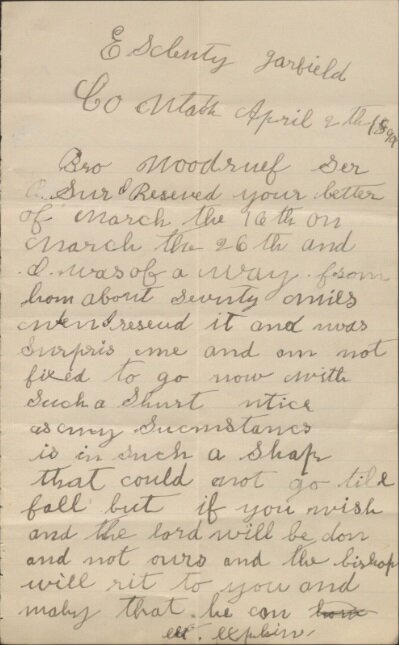 E Sclenty garfield
Co Utah April 2th
Bro Woodruef Ser
Sur I Reseved your letter
of March the 16th on
March the 26th and
I was of a way from
hom about seventy miles
wen I reseud it and was
surpris me and am not
fixed to go now with
such a shurt ntice
as my Sucmstancs
is in such a shap
that could not go till
fall but if you wish
and the lord will be don
and not ours and the bishop
will rit to you and
maby that he can
expbin